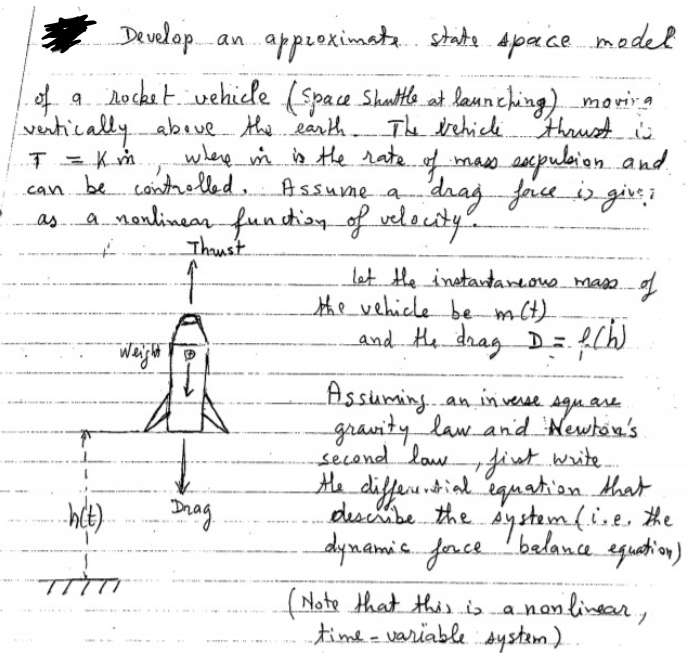 Develop an approximate state space model
of a rocket vehicle (Space Shuttle at launching) moving
vertically above the earth. The Vehicle thrust is
T = K ṁ, where ṁ is the rate of mass expulsion and
can be controlled. Assume a drag force is given
as a nonlinear function of velocity.
Thrust
let the instantaneous mass of
the vehicle be m(t)
and the drag D = f(ḣ)
Weight
Assuming an inverse square
gravity law and Newton's
second law, first write
the differential equation that
describe the system (i.e. the
dynamic force balance equation)
Drag
h(t)
(Note that this is a nonlinear,
time-variable system)